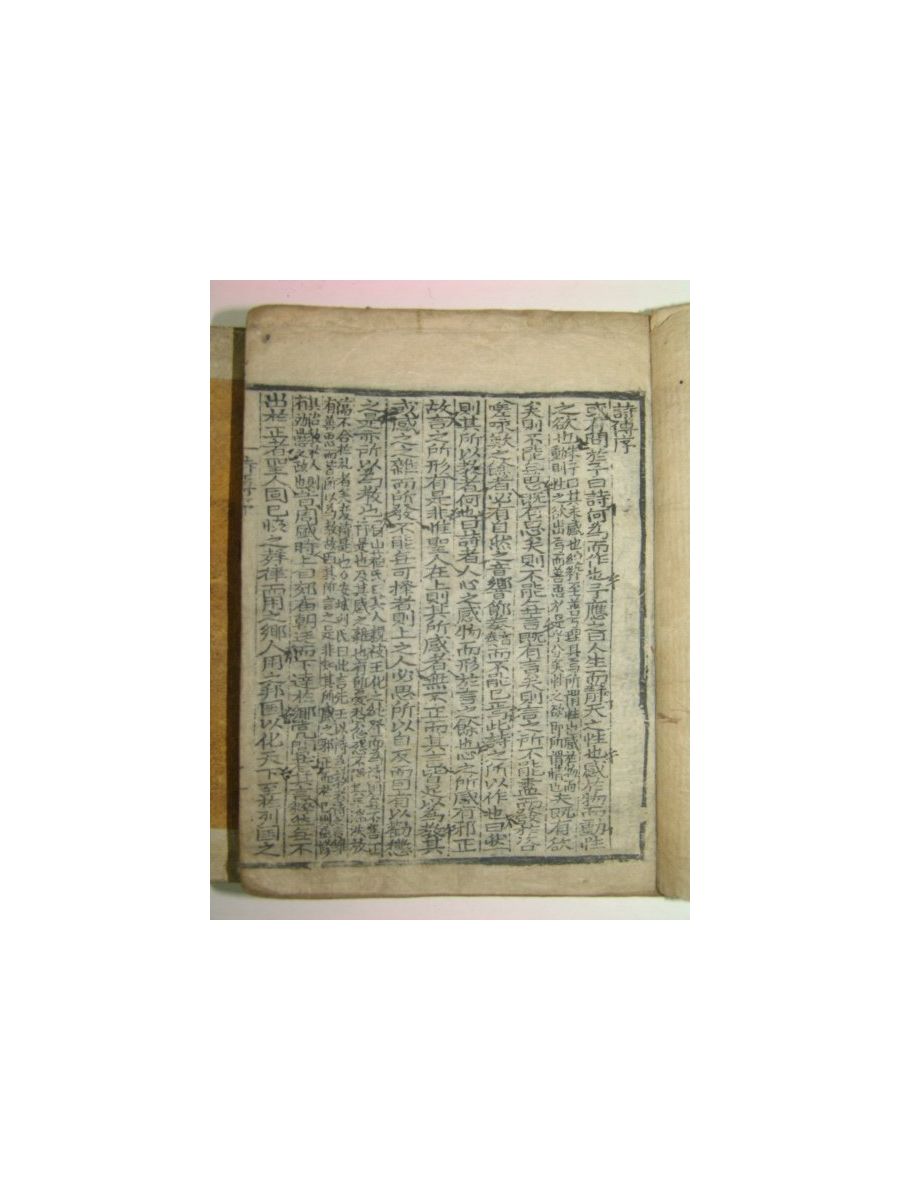 詩傳序
或有問於予曰詩何爲而作也予應之曰人生而靜天之性也感於物而動性
之欲也朱子曰其未感也純粹至善萬理具焉所謂性也感於物而動則性之欲出焉而善惡於是乎分矣性之欲即所謂情也夫既有欲
矣則不能無思既有思矣則不能無言既有言矣則言之所不能盡而發於咨
嗟咏歎之餘者必有自然之音響節奏而不能已焉此詩之所以作也曰然
則其所以敎者何也曰詩者人心之感物而形於言之餘也心之所感有邪正
故言之所形有是非惟聖人在上則其所感者無不正而其言皆足以爲敎其
或感之之雜而所發不能無可擇者則上之人必思所以自反而因有以勸懲
之是亦所以爲敎也
有勸懲之政也昔周盛時上自郊廟朝廷而下達於鄕黨閭巷其言粹然無不
出於正者聖人固已協之聲律而用之鄕人用之邦國以化天下至於列國之
詩傳序